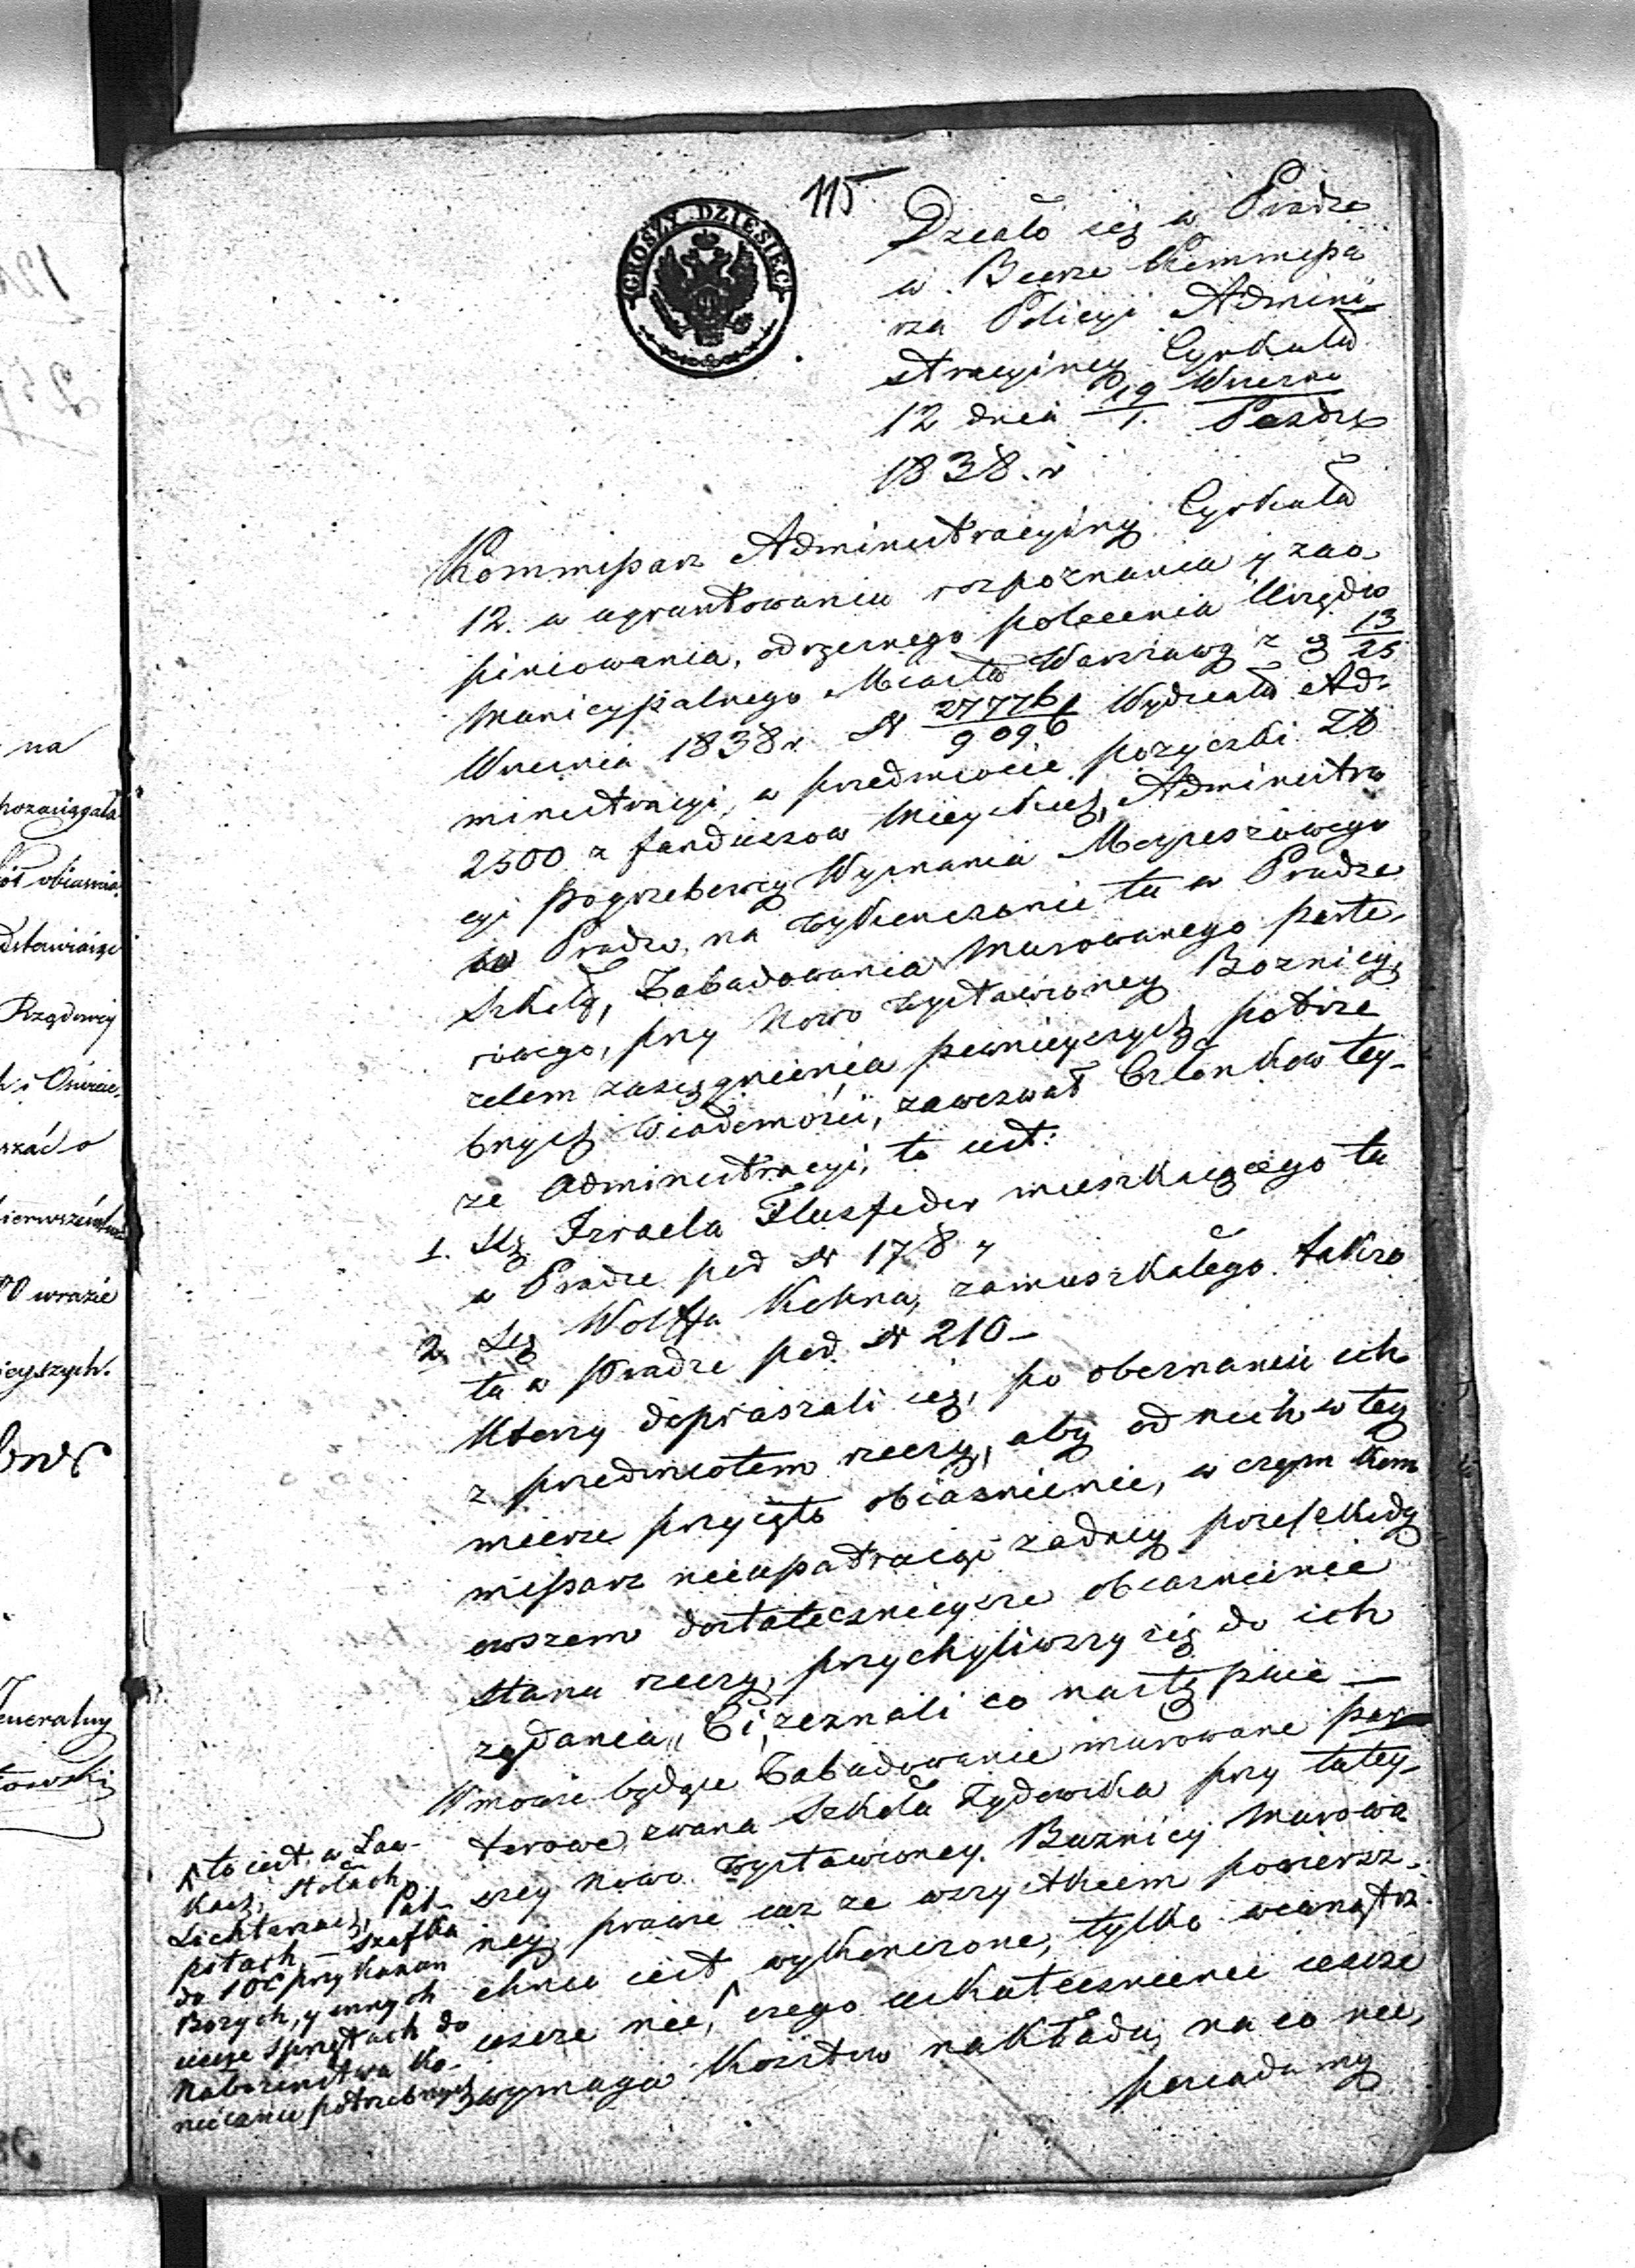 115
GROSZY DZIESIĘĆ
Działo się w Pradze
w Biurze Kommissa
rza Policyi Admini
stracyiney Cyrkułu
12 dnia 19/1. Wrześ./Paźdz.
1838. r
Kommissarz Administracyiny Cyrkułu
12. w ugruntowaniu rozpoznania y zao
piniowania, odręcznego polecenia Urzędu
Municypalnego Miasta Warszawy z d 13/25
Września 1838 r. N 27776/9096 Wydziału Ad-
ministracyi, w przedmiocie pożyczki Zł
2500 z funduszow Mieyskich, Administra
cyi Pogrzebowey Wyznania Moyżeszowego
w Pradze, na wykończenie tu w Pradze
Szkoły, Zabudowania Murowanego parte-
rowego, przy Nowo wystawioney Bożnicy,
celem zasięgnienia pewnieyszych potrze
bnych wiadomości, zawezwał Członkow tey-
że Administracyi, to iest:
1. Stę Izraela Flusfeder mieszkaiącego tu
w Pradze pod N 178 y
2. Stę Wolffa Kohna, zamieszkałego. także
tu w Pradze pod N 210 –
Ktorzy dopraszali się, po obeznaniu ich
z przedmiotem rzeczy, aby od nich w tey
mierze przyięto obiaśnienie, w czym Kom
missarz nieupatruiąc żadney przeszkody
owszem dostatecznieysze obiaśnienie
stanu rzeczy, przychyliwszy się do ich
żądania, Ci, zeznali co następuie –
W mowie będące Zabudowanie murowane par
terowe, zwane Szkoła Żydowska przy tutey-
szey nowo wystawioney. Bużnicy Murowa
ney, prawie iuż ze wszystkiem powierz-
chnie iest wykończone, tylko wewnątrz
ieszcze nie, czego uskutecznienie ieszcze
wymaga kosztow nakładu, na co nie,
posiadamy
to iest, w Ław-
kach, stołach
Lichtarzach, Pul-
pitach – szafka
do 10c przykazan
Bożych, y innych
ieszcze sprzętach do
Nabożeństwa ko-
niecznie potrzebnych
na
Rządowey
w razie